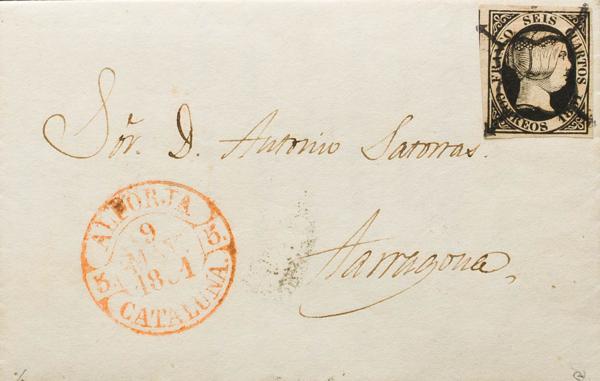 FRANCO SEIS CUARTOS
CORREOS 1851
Sor. D. Antonio Satorras.
Tarragona.
ALFORJA
9
1851
CATALUÑA